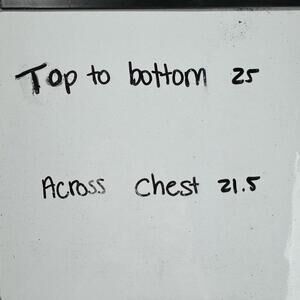 Top to bottom 25
Across Chest 21.5